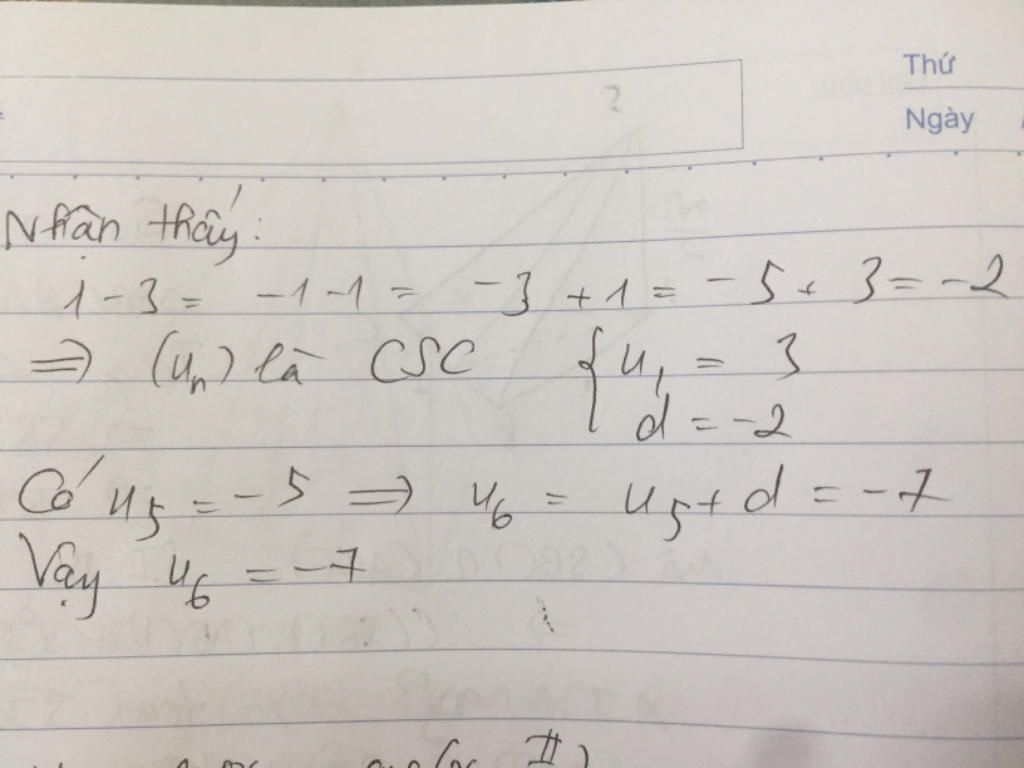 Thứ
Ngày
Nhận thấy:
1 - 3 = -1 - 1 = -3 + 1 = -5 + 3 = -2
⇒ (uₙ) là CSC { u₁ = 3
d = -2
Có u₅ = -5 ⇒ u₆ = u₅ + d = -7
Vậy u₆ = -7